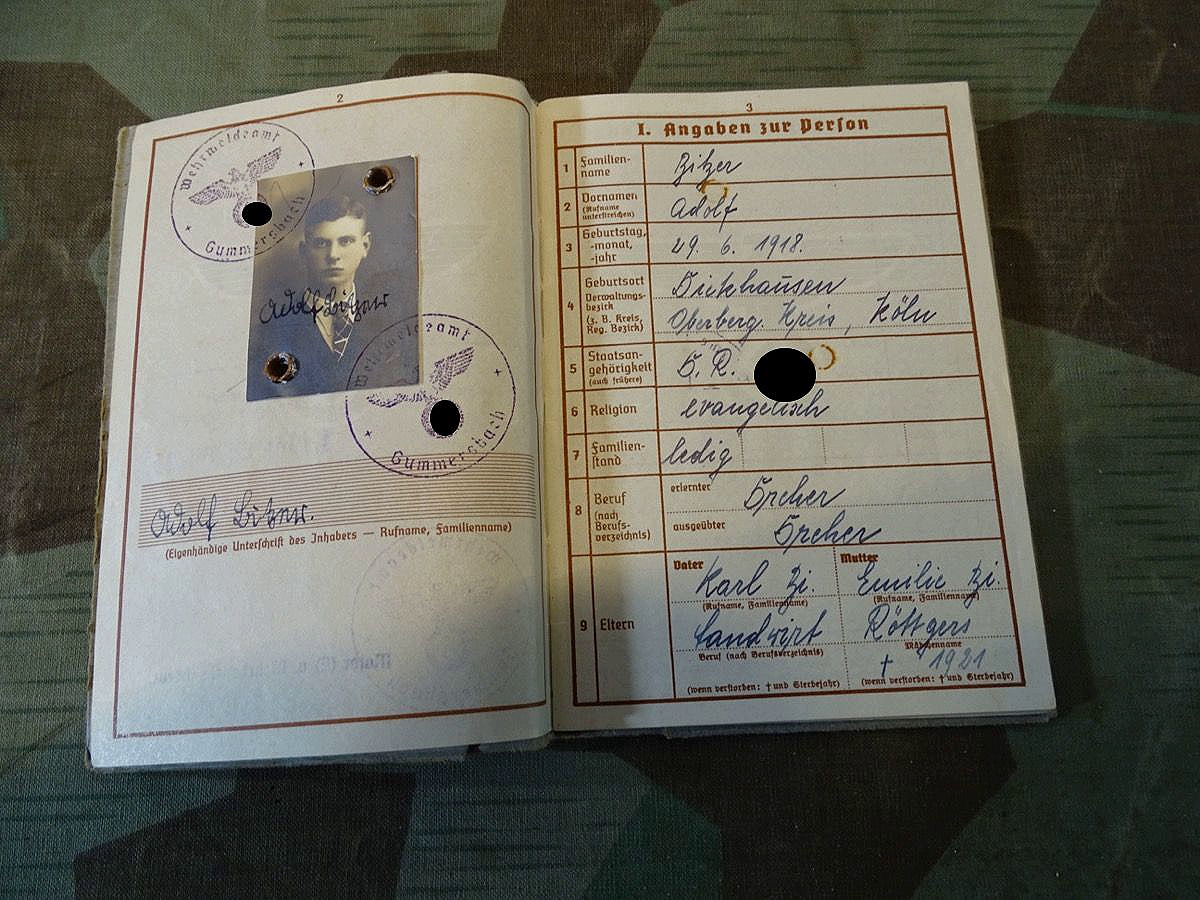 2
Wehrmeldeamt
Gummersbach
Adolf Bitzer
Wehrmeldeamt
Gummersbach
Adolf Bitzer.
(Eigenhändige Unterschrift des Inhabers — Rufname, Familienname)
3
I. Angaben zur Person
1 Familien-
name
Adolf
2 Vornamen
(Rufname
unterstreichen)
3 Geburtstag,
-monat,
-jahr
29. 6. 1918.
4 Geburtsort
Verwaltungs-
bezirk
(z. B. Kreis,
Reg. Bezirk)
Dickhausen
Oberberg. Kreis, Köln
5 Staatsan-
gehörigkeit
(auch frühere)
D. R.
6 Religion
evangelisch
7 Familien-
stand
ledig
8 Beruf
(nach
Berufs-
verzeichnis)
erlernter
Dreher
ausgeübter
Dreher
9 Eltern
Vater
Karl
(Rufname, Familienname)
Landwirt
Beruf (nach Berufsverzeichnis)
(wenn verstorben: † und Sterbejahr)
Mutter
Emilie
(Rufname, Familienname)
Röttgers
Mädchenname
† 1921
(wenn verstorben: † und Sterbejahr)